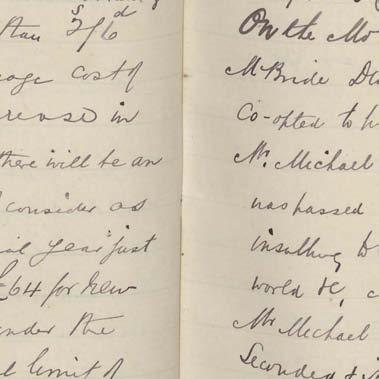 than 2/6
s d
cost of
in
there will be an
consider as
year just
£64 for new
under the
limit of
On the Mo
McBride
Co-opted to
Mr. Michael
was passed
insulting to
world &c,
Mr Michael
Seconded